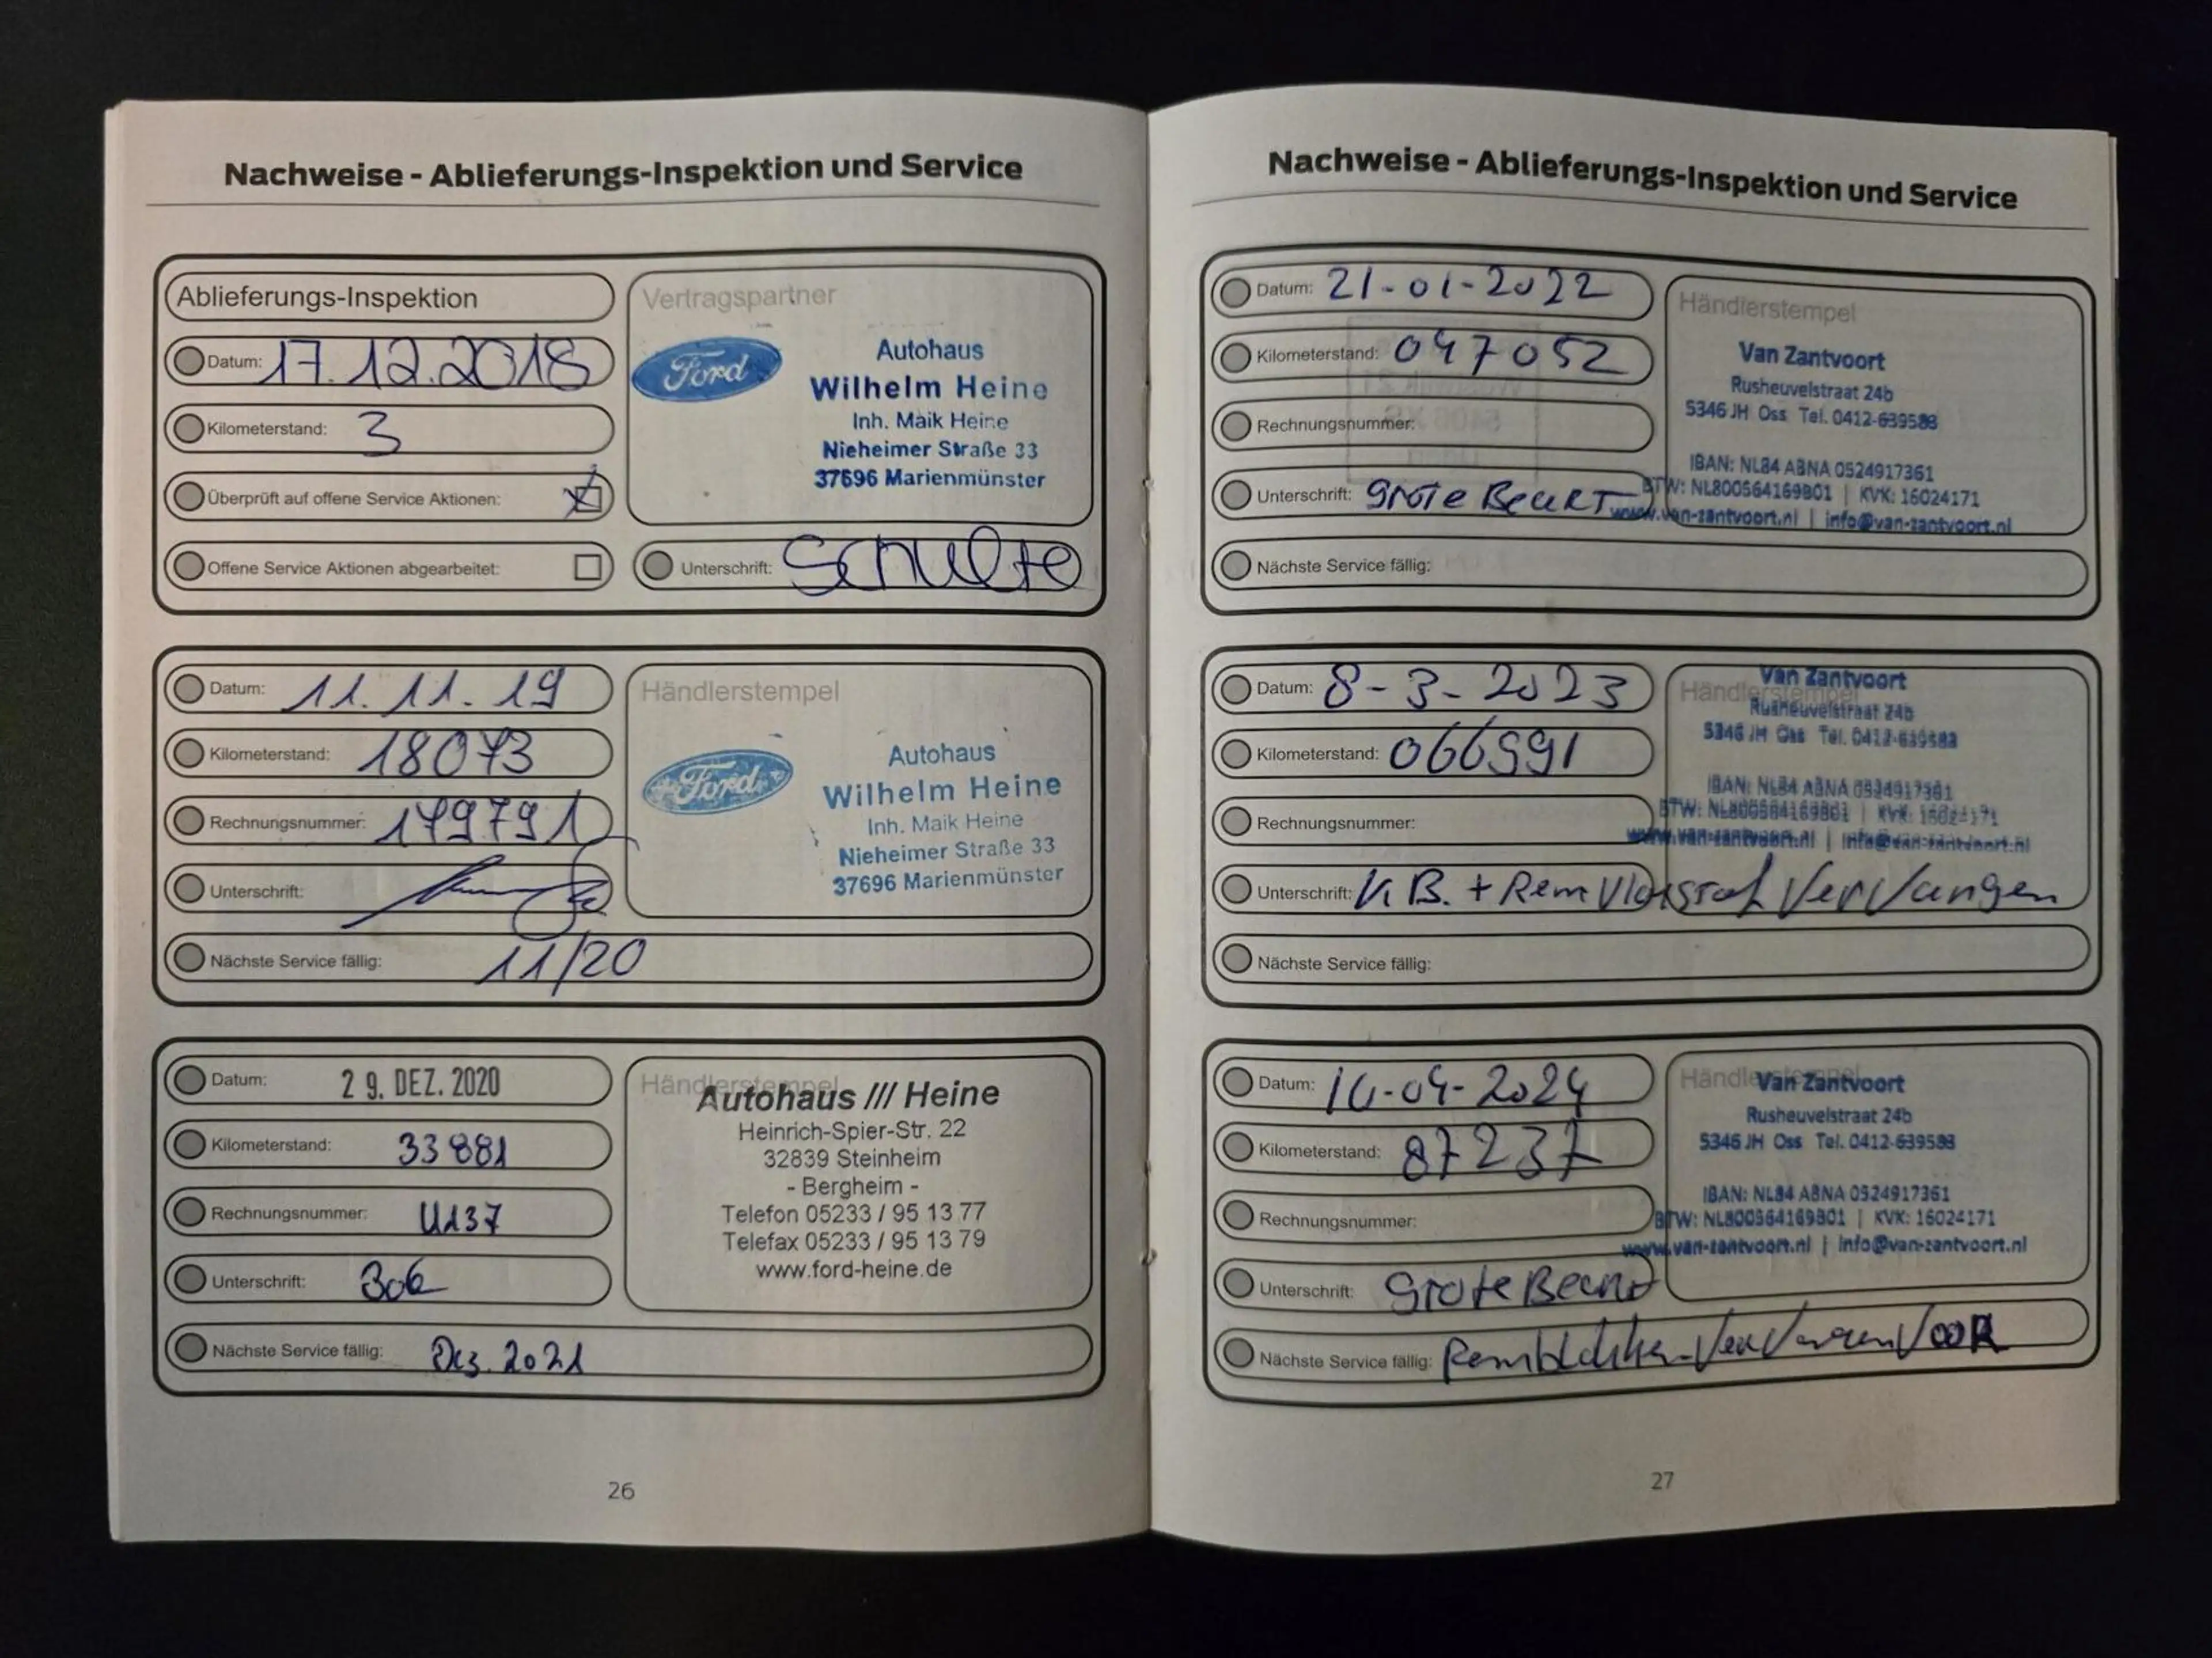 Nachweise - Ablieferungs-Inspektion und Service
Ablieferungs-Inspektion
Datum: 17.12.2018
Kilometerstand: 3
Überprüft auf offene Service Aktionen:
Offene Service Aktionen abgearbeitet:
Vertragspartner
Ford
Autohaus
Wilhelm Heine
Inh. Maik Heine
Nieheimer Straße 33
37696 Marienmünster
Unterschrift: Schulte
Datum: 11.11.19
Kilometerstand: 18073
Rechnungsnummer: 179791
Unterschrift:
Nächste Service fällig: 11/20
Händlerstempel
Ford
Autohaus
Wilhelm Heine
Inh. Maik Heine
Nieheimer Straße 33
37696 Marienmünster
Datum: 29. DEZ. 2020
Kilometerstand: 33881
Rechnungsnummer: U137
Unterschrift:
Nächste Service fällig: Dez. 2021
Händlerstempel
Autohaus /// Heine
Heinrich-Spier-Str. 22
32839 Steinheim
- Bergheim -
Telefon 05233 / 95 13 77
Telefax 05233 / 95 13 79
www.ford-heine.de
26
Nachweise - Ablieferungs-Inspektion und Service
Datum: 21-01-2022
Kilometerstand: 047052
Rechnungsnummer:
Unterschrift: Grote Beurt
Nächste Service fällig:
Händlerstempel
Van Zantvoort
Rusheuvelstraat 24b
5346 JH Oss Tel. 0412-639588
IBAN: NL84 ABNA 0524917361
BTW: NL800564169B01 | KVK: 16024171
www.van-zantvoort.nl | info@van-zantvoort.nl
Datum: 8-3-2023
Kilometerstand: 066991
Rechnungsnummer:
Unterschrift: K.B. + Remvloeistof Vervangen
Nächste Service fällig:
Händlerstempel
Van Zantvoort
Rusheuvelstraat 24b
5346 JH Oss Tel. 0412-639588
IBAN: NL84 ABNA 0524917361
BTW: NL800564169B01 | KVK: 16024171
www.van-zantvoort.nl | info@van-zantvoort.nl
Datum: 10-04-2024
Kilometerstand: 87237
Rechnungsnummer:
Unterschrift: Grote Beurt
Nächste Service fällig: Remblokken Vervangen VOOR
Händlerstempel
Van Zantvoort
Rusheuvelstraat 24b
5346 JH Oss Tel. 0412-639588
IBAN: NL84 ABNA 0524917361
BTW: NL800564169B01 | KVK: 16024171
www.van-zantvoort.nl | info@van-zantvoort.nl
27